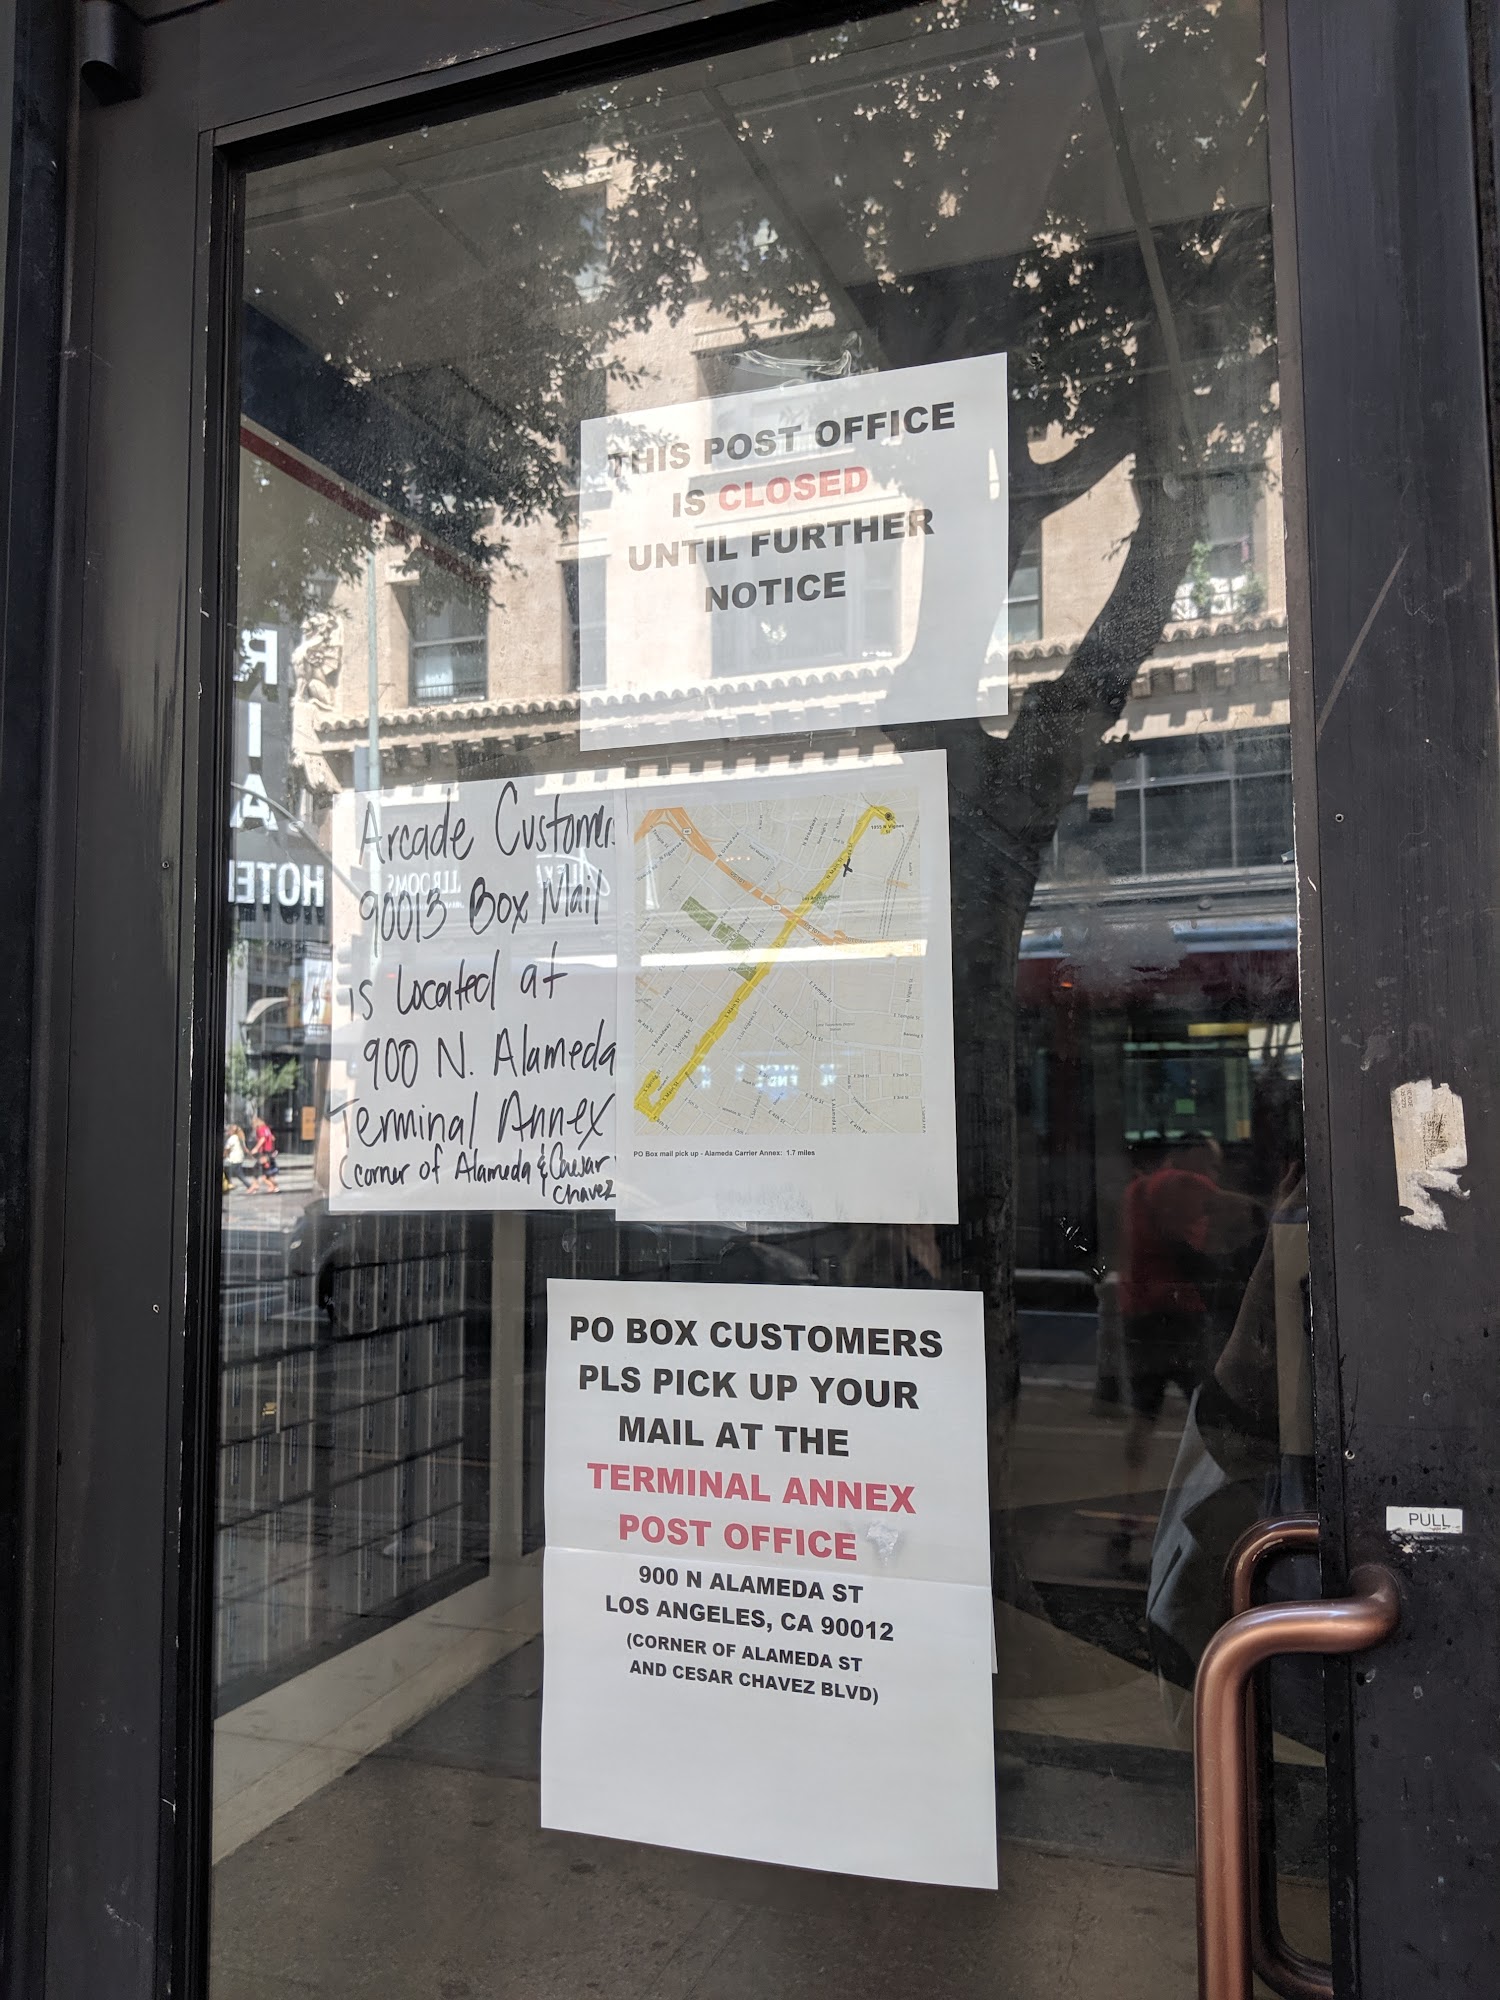 THIS POST OFFICE
IS CLOSED
UNTIL FURTHER
NOTICE
Arcade Customers
90013 Box Mail
is located at
900 N. Alameda
Terminal Annex
(corner of Alameda & Caesar
Chavez
PO Box mail pick up - Alameda Carrier Annex: 1.7 miles
PO BOX CUSTOMERS
PLS PICK UP YOUR
MAIL AT THE
TERMINAL ANNEX
POST OFFICE
900 N ALAMEDA ST
LOS ANGELES, CA 90012
(CORNER OF ALAMEDA ST
AND CESAR CHAVEZ BLVD)
PULL
RIA
HOTE